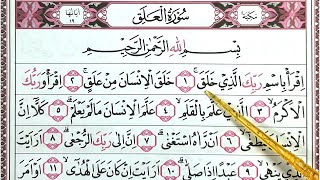 مكية
سورة العلق
آياتها ١٩
بِسْمِ اللهِ الرَّحْمٰنِ الرَّحِيْمِ
اِقْرَأْ بِاسْمِ رَبِّكَ الَّذِيْ خَلَقَ ١ خَلَقَ الْاِنْسَانَ مِنْ عَلَقٍ ٢ اِقْرَأْ وَرَبُّكَ
الْاَكْرَمُ ٣ الَّذِيْ عَلَّمَ بِالْقَلَمِ ٤ عَلَّمَ الْاِنْسَانَ مَا لَمْ يَعْلَمْ ٥ كَلَّا اِنَّ
الْاِنْسَانَ لَيَطْغٰى ٦ اَنْ رَاٰهُ اسْتَغْنٰى ٧ اِنَّ اِلٰى رَبِّكَ الرُّجْعٰى ٨ اَرَاَيْتَ
الَّذِيْ يَنْهٰى ٩ عَبْدًا اِذَا صَلّٰى ١٠ اَرَاَيْتَ اِنْ كَانَ عَلَى الْهُدٰى ١١ اَوْ اَمَرَ